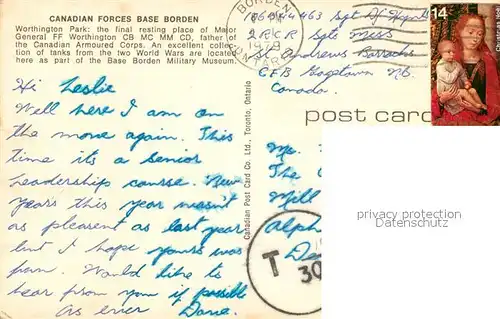 CANADIAN FORCES BASE BORDEN
Worthington Park: the final resting place of Major
General FF Worthington CB MC MM CD, father of
the Canadian Armoured Corps. An excellent collec-
tion of tanks from the two World Wars are located
here as part of the Base Borden Military Museum.
Hi Leslie
Well here I am on
the move again. This
time its a senior
Leadership course. New
years this year wasn't
as pleasent as last year
but I hope yours was
fun. Would like to
hear from you if possible
as ever Dave
Canadian Post Card Co. Ltd., Toronto, Ontario
BORDEN
1979
ONTARIO
Sgt
2 RCR Sgts Mess
St Andrews Barracks
CFB Gagetown NB.
Canada.
14
post card
The
Mill
Alph
De
T
30
privacy protection
Datenschutz